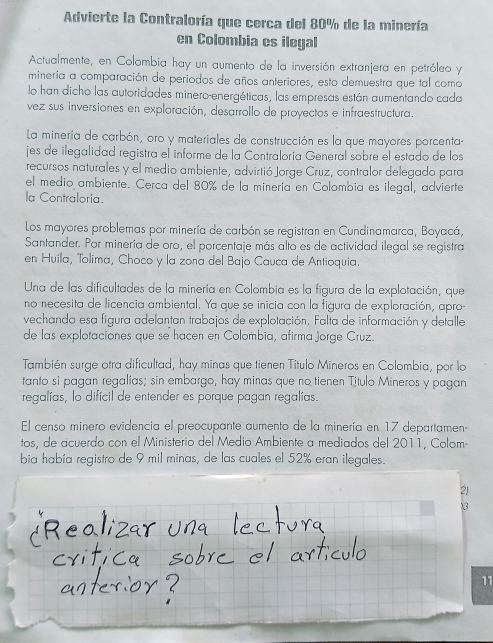 Advierte la Contraloría que cerca del 80% de la minería
en Colombia es ilegal
Actualmente, en Colombia hay un aumento de la inversión extranjera en petróleo y
minería a comparación de periodos de años anteriores, esto demuestra que tal como
lo han dicho las autoridades minero-energéticas, las empresas están aumentando cada
vez sus inversiones en exploración, desarrollo de proyectos e infraestructura.
La minería de carbón, oro y materiales de construcción es la que mayores porcenta-
jes de ilegalidad registra el informe de la Contraloría General sobre el estado de los
recursos naturales y el medio ambiente, advirtió Jorge Cruz, contralor delegado para
el medio ambiente. Cerca del 80% de la minería en Colombia es ilegal, advierte
la Contraloría.
Los mayores problemas por minería de carbón se registran en Cundinamarca, Boyacá,
Santander. Por minería de oro, el porcentaje más alto es de actividad ilegal se registra
en Huila, Tolima, Choco y la zona del Bajo Cauca de Antioquia.
Una de las dificultades de la minería en Colombia es la figura de la explotación, que
no necesita de licencia ambiental. Ya que se inicia con la figura de exploración, apro-
vechando esa figura adelantan trabajos de explotación. Falta de información y detalle
de las explotaciones que se hacen en Colombia, afirma Jorge Cruz.
También surge otra dificultad, hay minas que tienen Título Mineros en Colombia, por lo
tanto si pagan regalías; sin embargo, hay minas que no tienen Título Mineros y pagan
regalías, lo difícil de entender es porque pagan regalías.
El censo minero evidencia el preocupante aumento de la minería en 17 departamen-
tos, de acuerdo con el Ministerio del Medio Ambiente a mediados del 2011, Colom-
bia había registro de 9 mil minas, de las cuales el 52% eran ilegales.
¿Realizar una lectura
critica sobre el articulo
anterior?
11